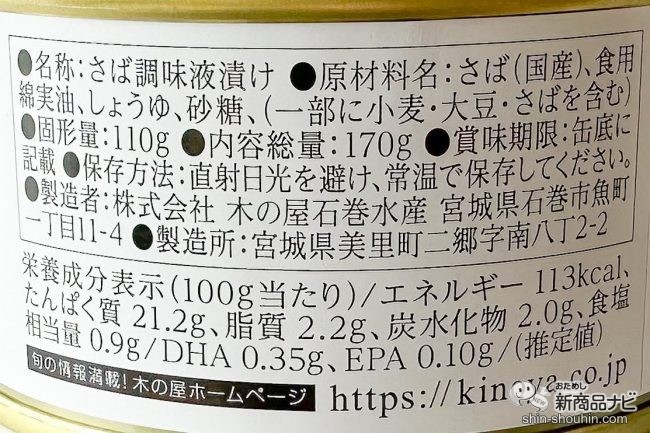 ●名称:さば調味液漬け ●原材料名:さば(国産)、食用
綿実油、しょうゆ、砂糖、(一部に小麦・大豆・さばを含む)
●固形量:110g ●内容総量:170g ●賞味期限:缶底に
記載 ●保存方法:直射日光を避け、常温で保存してください。
●製造者:株式会社 木の屋石巻水産 宮城県石巻市魚町
一丁目11-4 ●製造所:宮城県美里町二郷字南八丁2-2
栄養成分表示(100g当たり)/エネルギー 113kcal、
たんぱく質 21.2g、脂質 2.2g、炭水化物 2.0g、食塩
相当量 0.9g/DHA 0.35g、EPA 0.10g/(推定値)
旬の情報満載!木の屋ホームページ https://kinoya.co.jp
おためし
新商品ナビ
shin-shouhin.com